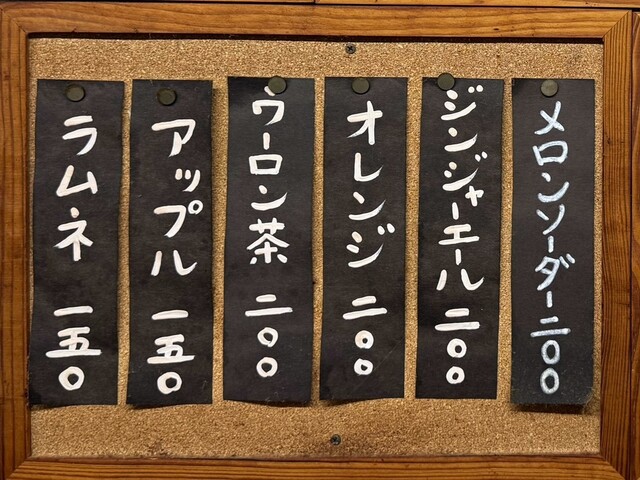 メロンソーダー二〇〇
ジンジャーエール二〇〇
オレンジ 二〇〇
ウーロン茶 二〇〇
アップル 一五〇
ラムネ 一五〇